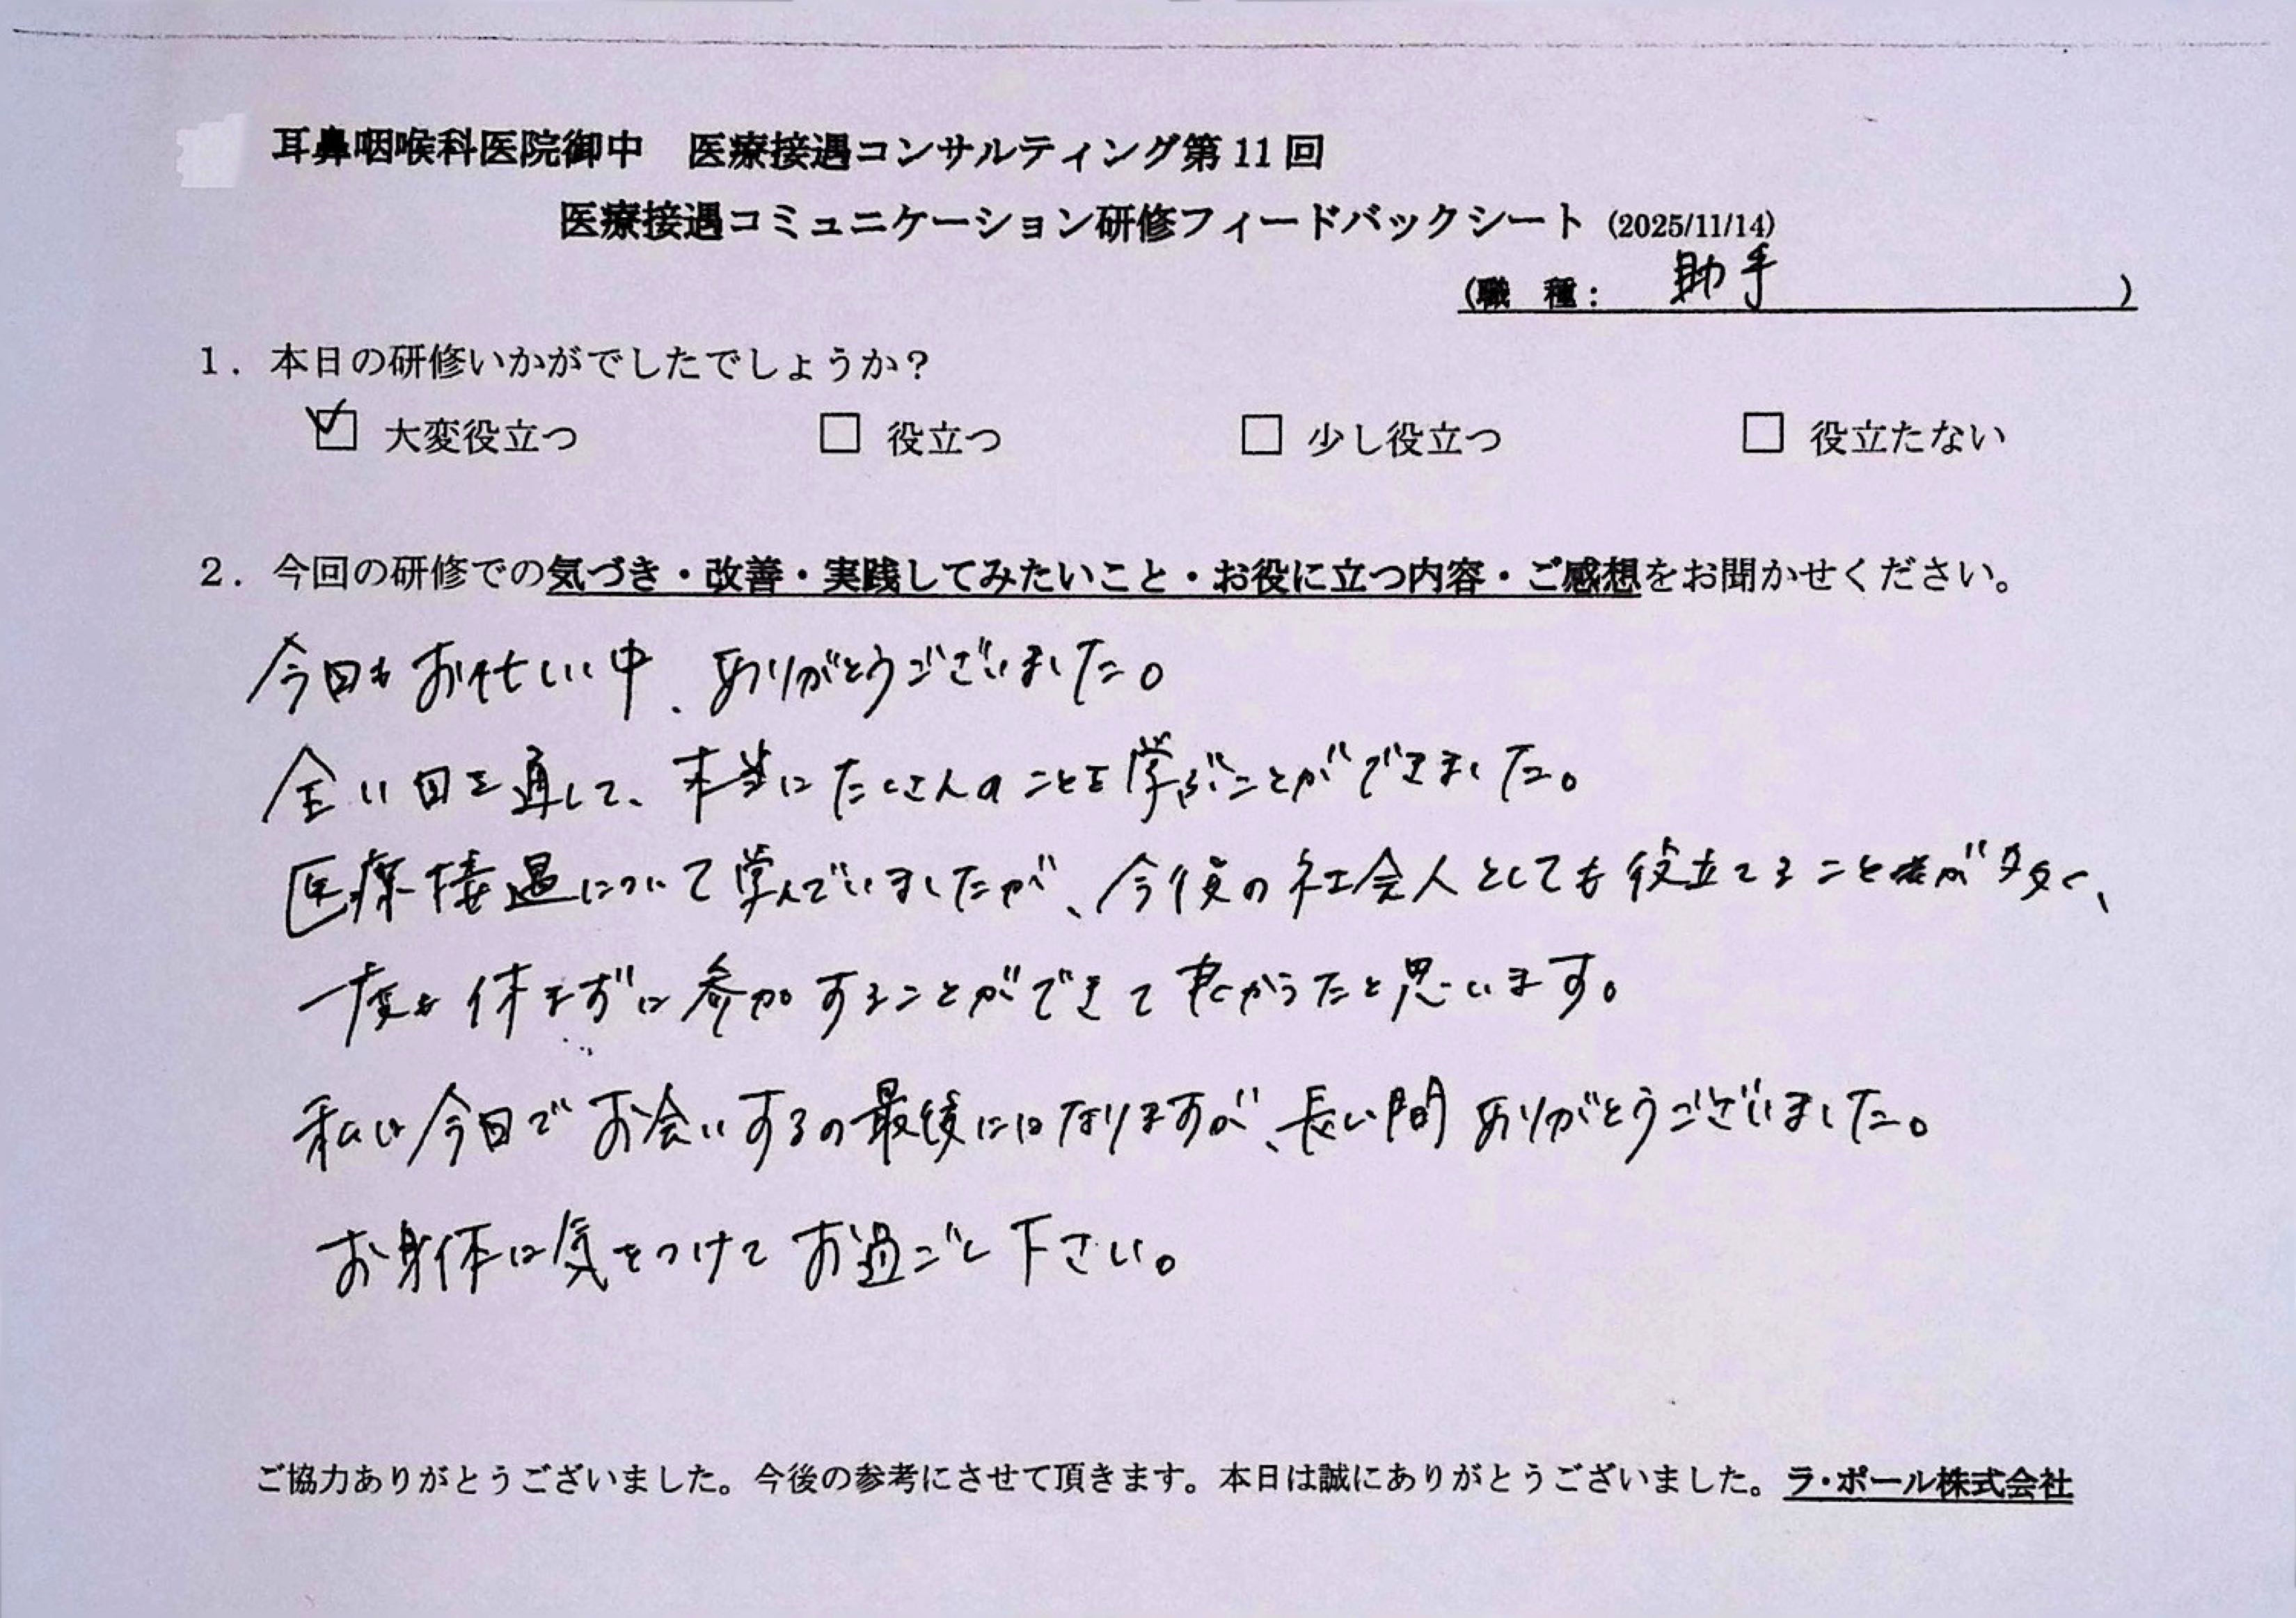 耳鼻咽喉科医院御中　医療接遇コンサルティング第11回
医療接遇コミュニケーション研修フィードバックシート (2025/11/14)
(職　種：　助手　)
1．本日の研修いかがでしたでしょうか？
☑ 大変役立つ　□ 役立つ　□ 少し役立つ　□ 役立たない
2．今回の研修での気づき・改善・実践してみたいこと・お役に立つ内容・ご感想をお聞かせください。
今日もお忙しい中、ありがとうございました。
全11回を通して、本当にたくさんのことを学ぶことができました。
医療接遇について学んでいましたが、今後の社会人としても役立てることが多く、
一度も休まずに参加することができて良かったと思います。
私は今日でお会いするの最後にはなりますが、長い間ありがとうございました。
お身体に気をつけてお過ごし下さい。
ご協力ありがとうございました。今後の参考にさせて頂きます。本日は誠にありがとうございました。ラ・ポール株式会社